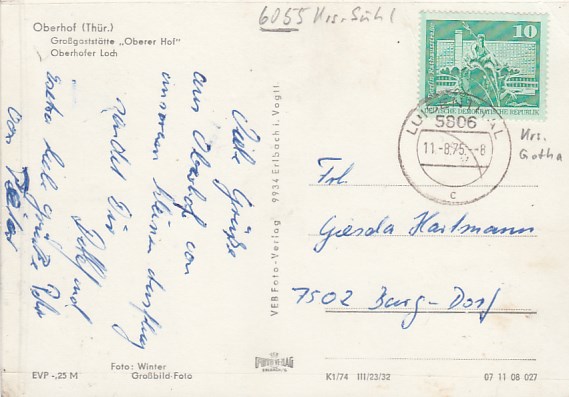 Oberhof (Thür.)
Großgaststätte „Oberer Hof"
Oberhofer Loch
6055 Krs. Suhl
10
DEUTSCHE DEMOKRATISCHE REPUBLIK
5806
11.-8.75.-8
c
Krs.
Gotha
Viele Grüße
aus Oberhof von
unserem kleinen Ausflug
sendet Dir
und
viele Grüße
von
VEB Foto-Verlag 9934 Erlbach i. Vogtl.
Frl.
Gerda Hartmann
7502 Burg-Dorf
Foto: Winter
Großbild-Foto
EVP -,25 M
K1/74 III/23/32
07 11 08 027